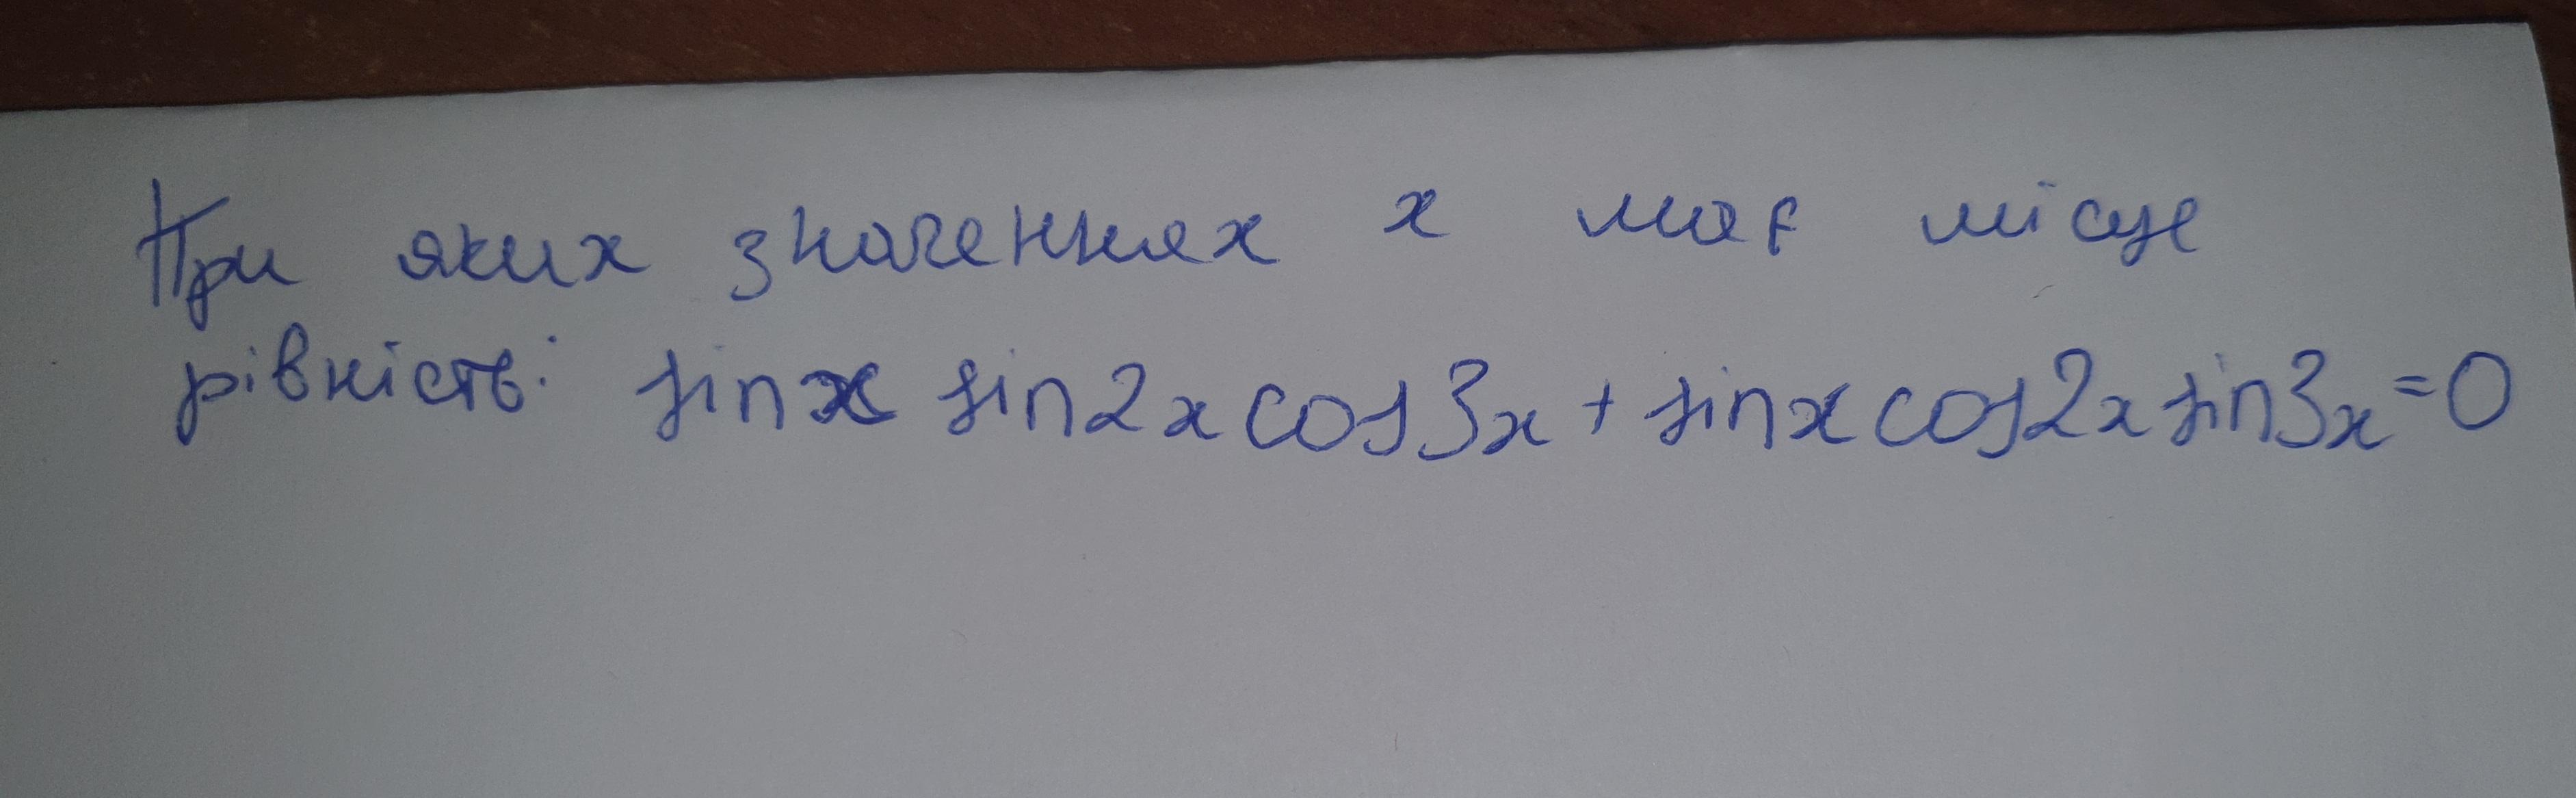 При яких значеннях x має місце
рівність: sinx sin2x cos3x + sinx cos2x sin3x = 0